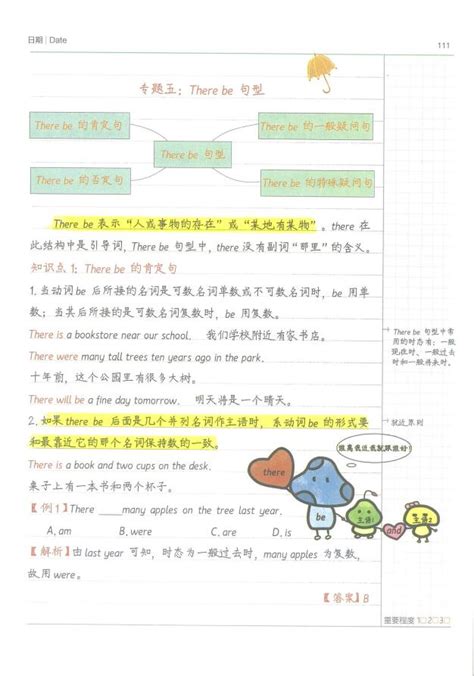 日期 | Date
111
专题五：There be 句型
There be 的肯定句
There be 的一般疑问句
There be 句型
There be 的否定句
There be 的特殊疑问句
There be 表示“人或事物的存在”或“某地有某物”。there 在
此结构中是引导词，There be 句型中，there 没有副词“那里”的含义。
知识点 1：There be 的肯定句
1. 当动词 be 后所接的名词是可数名词单数或不可数名词时，be 用单
数；当其后所接的是可数名词复数时，be 用复数。
There is a bookstore near our school. 我们学校附近有家书店。
There were many tall trees ten years ago in the park.
十年前，这个公园里有很多大树。
There will be a fine day tomorrow. 明天将是一个晴天。
There be 句型中常
用的时态有：一般
现在时、一般过去
时和一般将来时。
2. 如果 there be 后面是几个并列名词作主语时，系动词 be 的形式要
和最靠近它的那个名词保持数的一致。
就近原则
There is a book and two cups on the desk.
桌子上有一本书和两个杯子。
谁离我近我就跟谁好！
there
be
主语1
and
主语2
【例 1】There ____ many apples on the tree last year.
A. am B. were C. are D. is
【解析】由 last year 可知，时态为一般过去时，many apples 为复数，
故用 were。
【答案】B
重要程度 1□2□3□